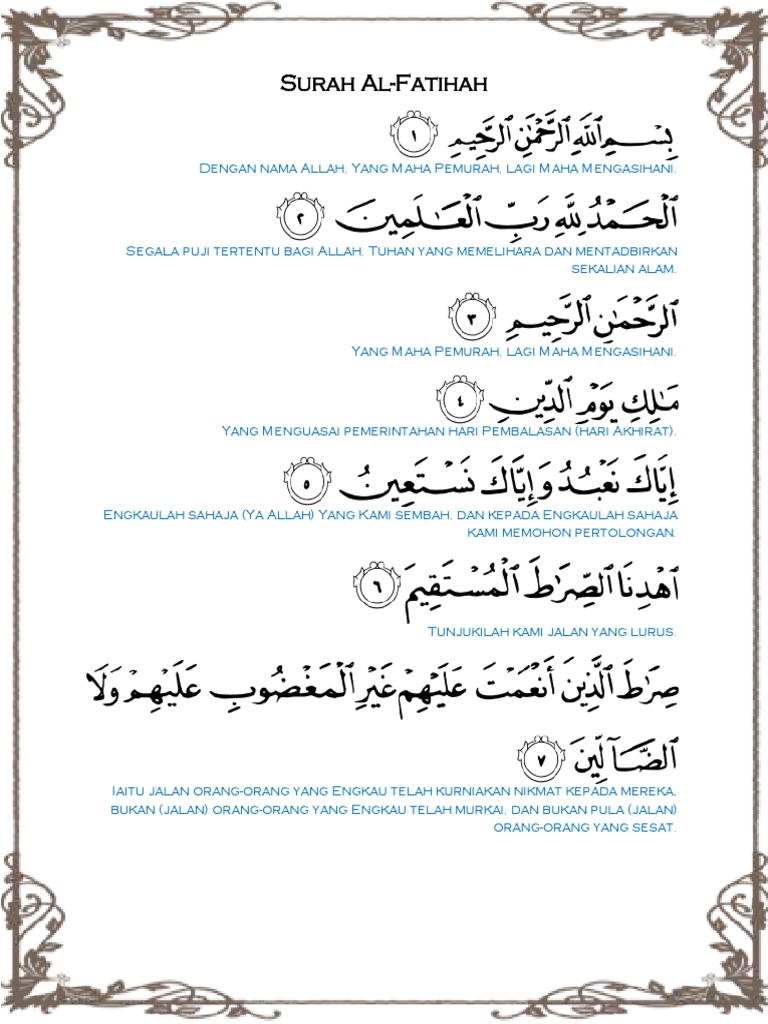 Surah Al-Fatihah
بِسْمِ ٱللَّهِ ٱلرَّحْمَٰنِ ٱلرَّحِيمِ ١
Dengan nama Allah, Yang Maha Pemurah, lagi Maha Mengasihani.
ٱلْحَمْدُ لِلَّهِ رَبِّ ٱلْعَٰلَمِينَ ٢
Segala puji tertentu bagi Allah, Tuhan yang memelihara dan mentadbirkan
sekalian alam.
ٱلرَّحْمَٰنِ ٱلرَّحِيمِ ٣
Yang Maha Pemurah, lagi Maha Mengasihani.
مَٰلِكِ يَوْمِ ٱلدِّينِ ٤
Yang Menguasai pemerintahan hari Pembalasan (hari Akhirat).
إِيَّاكَ نَعْبُدُ وَإِيَّاكَ نَسْتَعِينُ ٥
Engkaulah sahaja (Ya Allah) Yang Kami sembah, dan kepada Engkaulah sahaja
kami memohon pertolongan.
ٱهْدِنَا ٱلصِّرَٰطَ ٱلْمُسْتَقِيمَ ٦
Tunjukilah kami jalan yang lurus.
صِرَٰطَ ٱلَّذِينَ أَنْعَمْتَ عَلَيْهِمْ غَيْرِ ٱلْمَغْضُوبِ عَلَيْهِمْ وَلَا
ٱلضَّآلِّينَ ٧
Iaitu jalan orang-orang yang Engkau telah kurniakan nikmat kepada mereka,
bukan (jalan) orang-orang yang Engkau telah murkai, dan bukan pula (jalan)
orang-orang yang sesat.